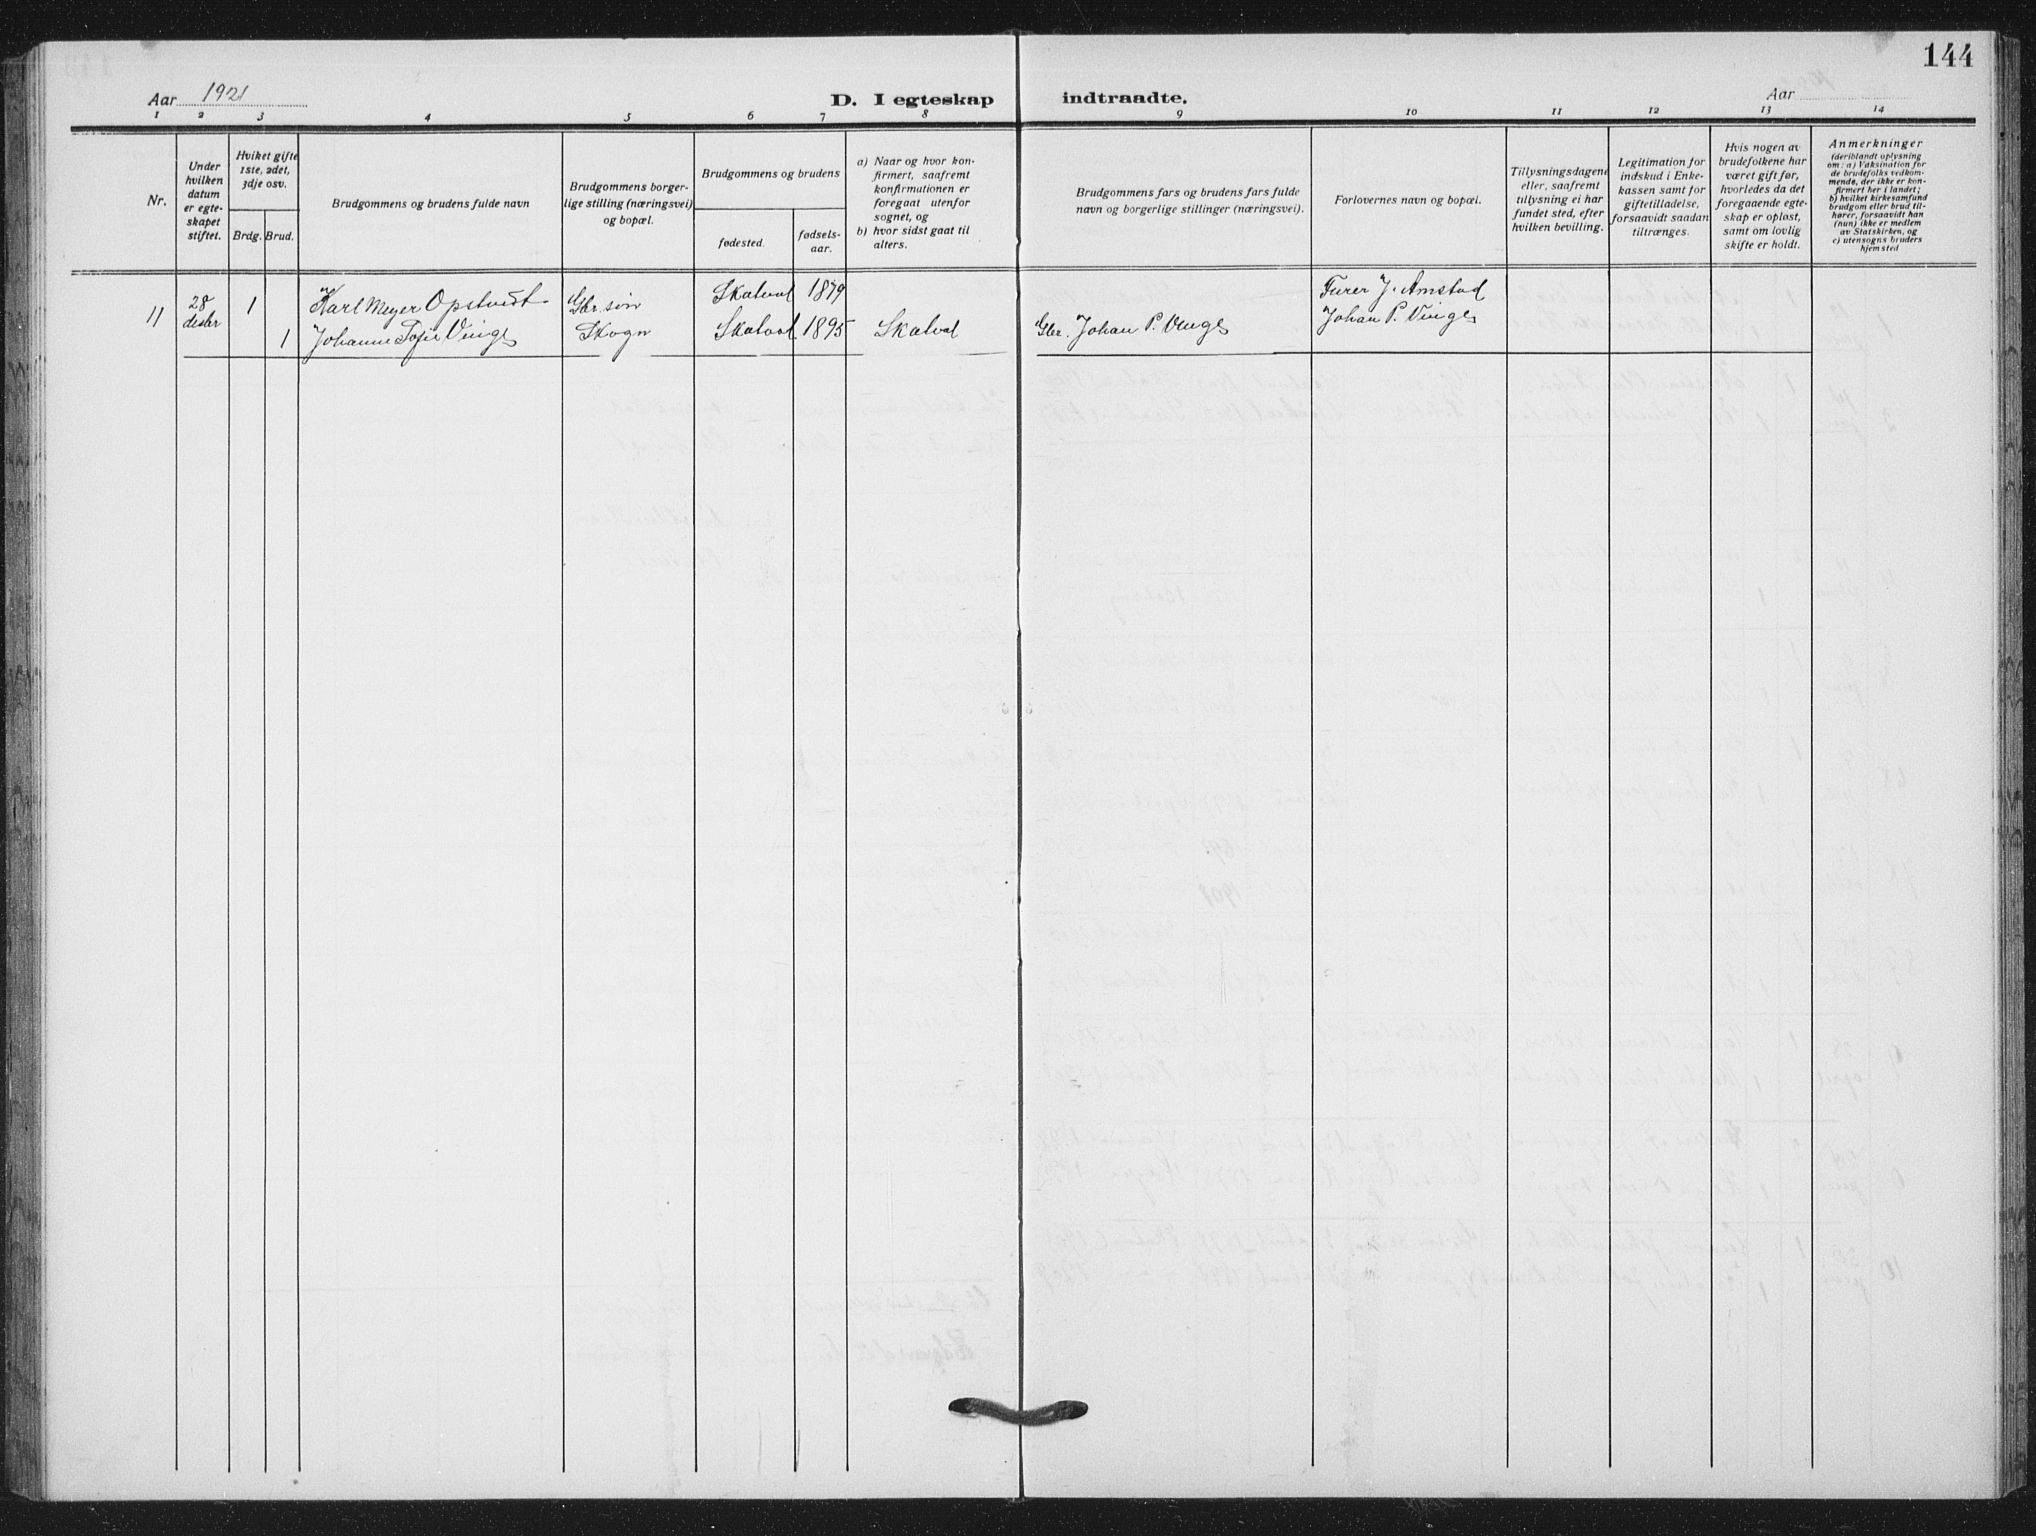 144
Aar 1921
D. I egteskap indtraadte.
Aar
1 2 3 4 5 6 7 8 9 10 11 12 13 14
Nr.
Under
hvilken
datum
er egte-
skapet
stiftet.
Hvilket gifte
1ste, 2det,
3dje osv.
Brdg. Brud.
Brudgommens og brudens fulde navn
Brudgommens borger-
lige stilling (næringsvei)
og bopæl.
Brudgommens og brudens
fødested.
fødsels-
aar.
a) Naar og hvor kon-
firmert, saafremt
konfirmationen er
foregaat utenfor
sognet, og
b) hvor sidst gaat til
alters.
Brudgommens fars og brudens fars fulde
navn og borgerlige stillinger (næringsvei).
Forlovernes navn og bopæl.
Tillysningsdagene
eller, saafremt
tillysning ei har
fundet sted, efter
hvilken bevilling.
Legitimation for
indskud i Enke-
kassen samt for
giftetilladelse,
forsaavidt saadan
tiltrænges.
Hvis nogen av
brudefolkene har
været gift før,
hvorledes da det
foregaaende egte-
skap er opløst,
samt om lovlig
skifte er holdt.
Anmerkninger
(deriblandt oplysning
om: a) Vaksination for
de brudefolks vedkom-
mende, der ikke er kon-
firmert her i landet;
b) hvilket kirkesamfund
brudgom eller brud til-
hører, forsaavidt han
(hun) ikke er medlem
av Statskirken, og
c) utensogns bruders
hjemsted
11 28 desbr 1 Karl Meyer Opstvedt Gbr. søn Skatval 1879
1 Johanne Sofie Vinge Skogn Skatval 1895 Skatval
Gbr. Johan P. Vinge
J. Amstad
Johan P. Vinge